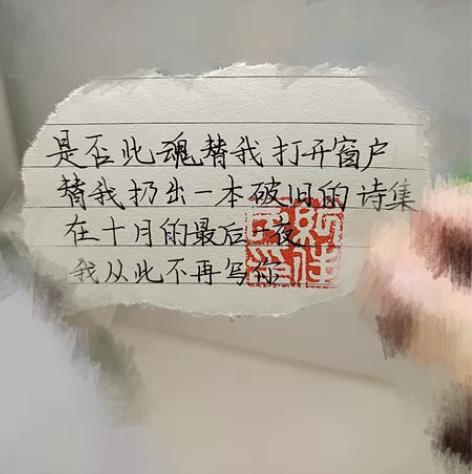 是否此魂替我打开窗户
替我扔出一本破旧的诗集
在十月的最后一夜
我从此不再写你